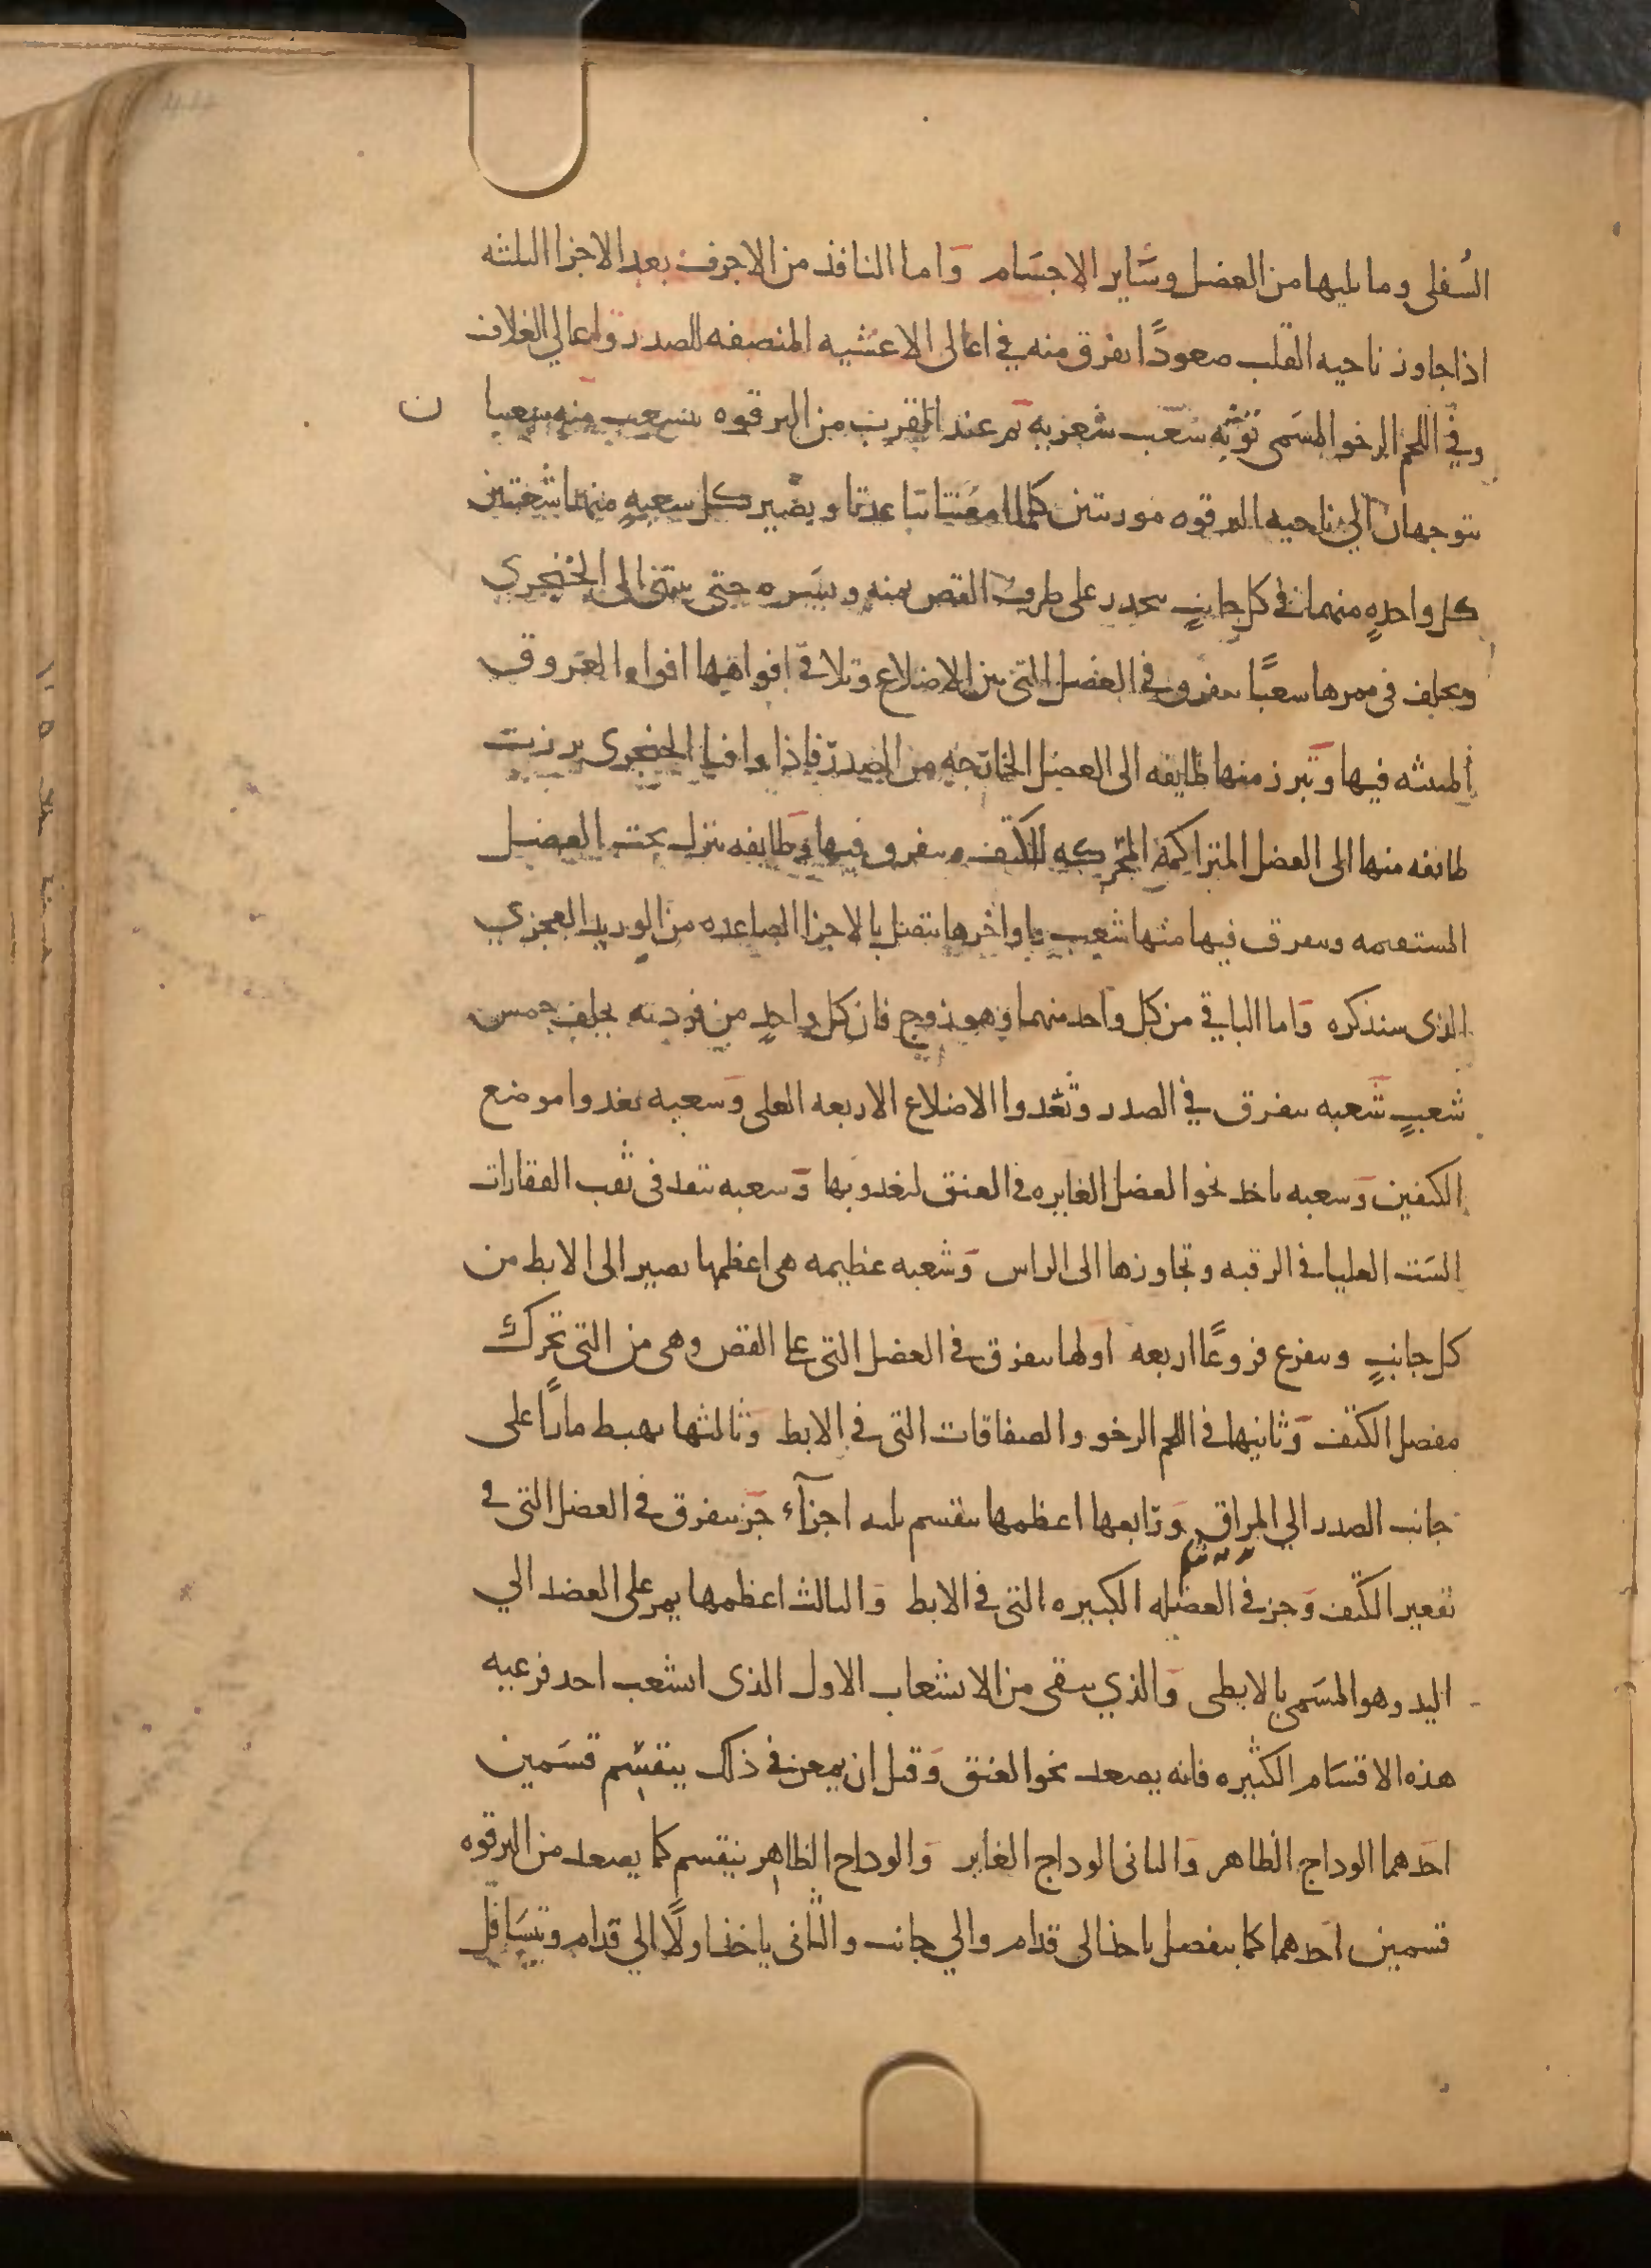 السُفلى وما يليها من العضل وسَاير الاجسَام وَاما النافذ من الاجوف بعد الاجزا الثلثه
اذا جاوز ناحيه القلب صعودًا تفرق منه في اعالى الاغشيه المنصفه للصدر واعالي الغلاف
وفي اللحم الرخو المسَمى توثه شعَب شعريه ثم عند القرب من الترقوه يتشعب منه شعبتا ن
يتوجهان الى ناحيه الترقوه موربتين كلما امعنتا تباعدتا ويصير كل شعبه منهما شعبتين
كل واحدهٍ منهما في كل جانبٍ ينحدر على طرف القص يمنه ويسَره حتى ينتهى الى الخنجري
ويخلف فى ممرها شعبًا يتفرق في العضل التى بين الاضلاع وتلاقى افواهها افواه العروق
المنبثه فيها وَتبرز منها طايفه الى العضل الخارجه من الصدر فاذا وافيا الخنجرى برزت
طايفه منها الى العضل المتراكمة المحركه للكتف ويتفرق فيها وَطايفه تنزل تحت العضل
المستقيمه ويتفرق فيها منها شعب واواخرها يتصل بالاجزا الصاعده من الوريد العجزي
الذى سنذكره وَاما الباقي من كل واحد منهما وهو زوج فان كل واحدٍ من فرديه يخلف خمس
شعبٍ شَعبه يتفرق في الصدر وتغدوا الاضلاع الاربعه العلى وَشعبه تغدوا موضع
الكتفين وَشعبه ياخذ نحو العضل الغايره فى العنق لتغدوها وَشعبه تنفذ فى ثقب الفقارات
السَت العليا فى الرقبه وتجاوزها الى الراس وَشعبه عظيمه هى اعظمها يصير الى الابط من
كل جانبٍ ويتفرع فروعًا اربعه اولها يتفرق فى العضل التى على القص وهى من التى تحرك
مفصل الكتف وَثانيها فى اللحم الرخو والصفاقات التى فى الابط وَثالثها يهبط مارًا على
جانب الصدر الي المراق وَرابعها اعظمها ينقسم ثلثه اجزآء جَز يتفرق فى العضل التى فى
تقعير الكتف وَجز فى العضله الكبيره التى فى الابط وَالثالث اعظمها يمر على العضد الي
اليد وهو المسَمى بالابطى وَالذي يبقى من الانشعاب الاول الذى انشعب احد فرعيه
هذه الاقسَام الكثيره فانه يصعد نحو العنق وَقبل ان يمعن فى ذلك ينقسِم قسَمين
احَدهما الوداج الظاهر وَالثانى الوداج الغاير وَالوداج الظاهر ينقسم كما يصعد من الترقوه
قسمين احدهما كما ينفصل ياخذ الى قدام والي جانب والثانى ياخذ اولًا الي قدام ويتسَافل